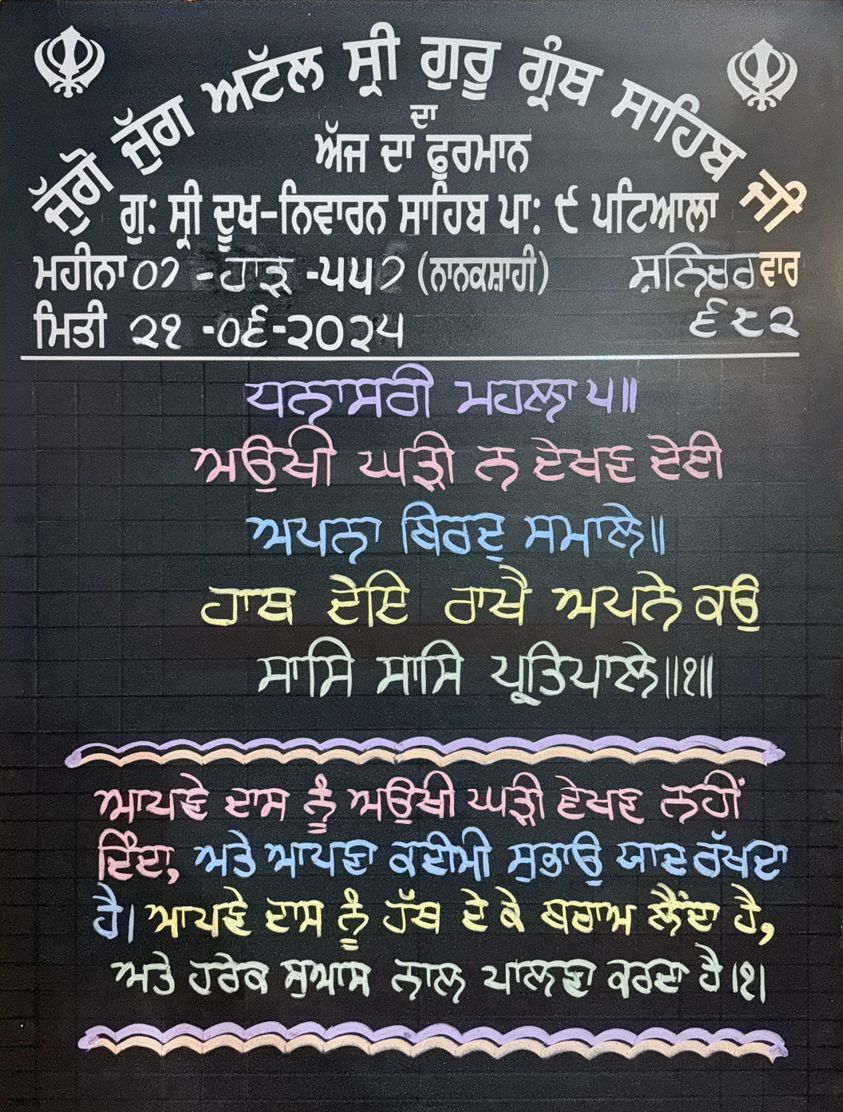 ਜੁੱਗੋ ਜੁੱਗ ਅਟੱਲ ਸ੍ਰੀ ਗੁਰੂ ਗ੍ਰੰਥ ਸਾਹਿਬ ਜੀ
ਦਾ
ਅੱਜ ਦਾ ਫੁਰਮਾਨ
ਗੁ: ਸ੍ਰੀ ਦੂਖ-ਨਿਵਾਰਨ ਸਾਹਿਬ ਪਾ: ੯ ਪਟਿਆਲਾ
ਮਹੀਨਾ 07 -ਹਾੜ -੫੫੭ (ਨਾਨਕਸ਼ਾਹੀ) ਸ਼ਨਿਚਰਵਾਰ
ਮਿਤੀ ੨੧ -੦੬-੨੦੨੫ ੬੮੨
ਧਨਾਸਰੀ ਮਹਲਾ ੫॥
ਅਉਖੀ ਘੜੀ ਨ ਦੇਖਣ ਦੇਈ
ਅਪਨਾ ਬਿਰਦੁ ਸਮਾਲੇ॥
ਹਾਥ ਦੇਇ ਰਾਖੈ ਅਪਨੇ ਕਉ
ਸਾਸਿ ਸਾਸਿ ਪ੍ਰਤਿਪਾਲੇ॥੧॥
ਆਪਣੇ ਦਾਸ ਨੂੰ ਅਉਖੀ ਘੜੀ ਵੇਖਣ ਨਹੀਂ
ਦਿੰਦਾ, ਅਤੇ ਆਪਣਾ ਕਦੀਮੀ ਸੁਭਾਉ ਯਾਦ ਰੱਖਦਾ
ਹੈ। ਆਪਣੇ ਦਾਸ ਨੂੰ ਹੱਥ ਦੇ ਕੇ ਬਚਾਅ ਲੈਂਦਾ ਹੈ,
ਅਤੇ ਹਰੇਕ ਸੁਆਸ ਨਾਲ ਪਾਲਣਾ ਕਰਦਾ ਹੈ।੧।